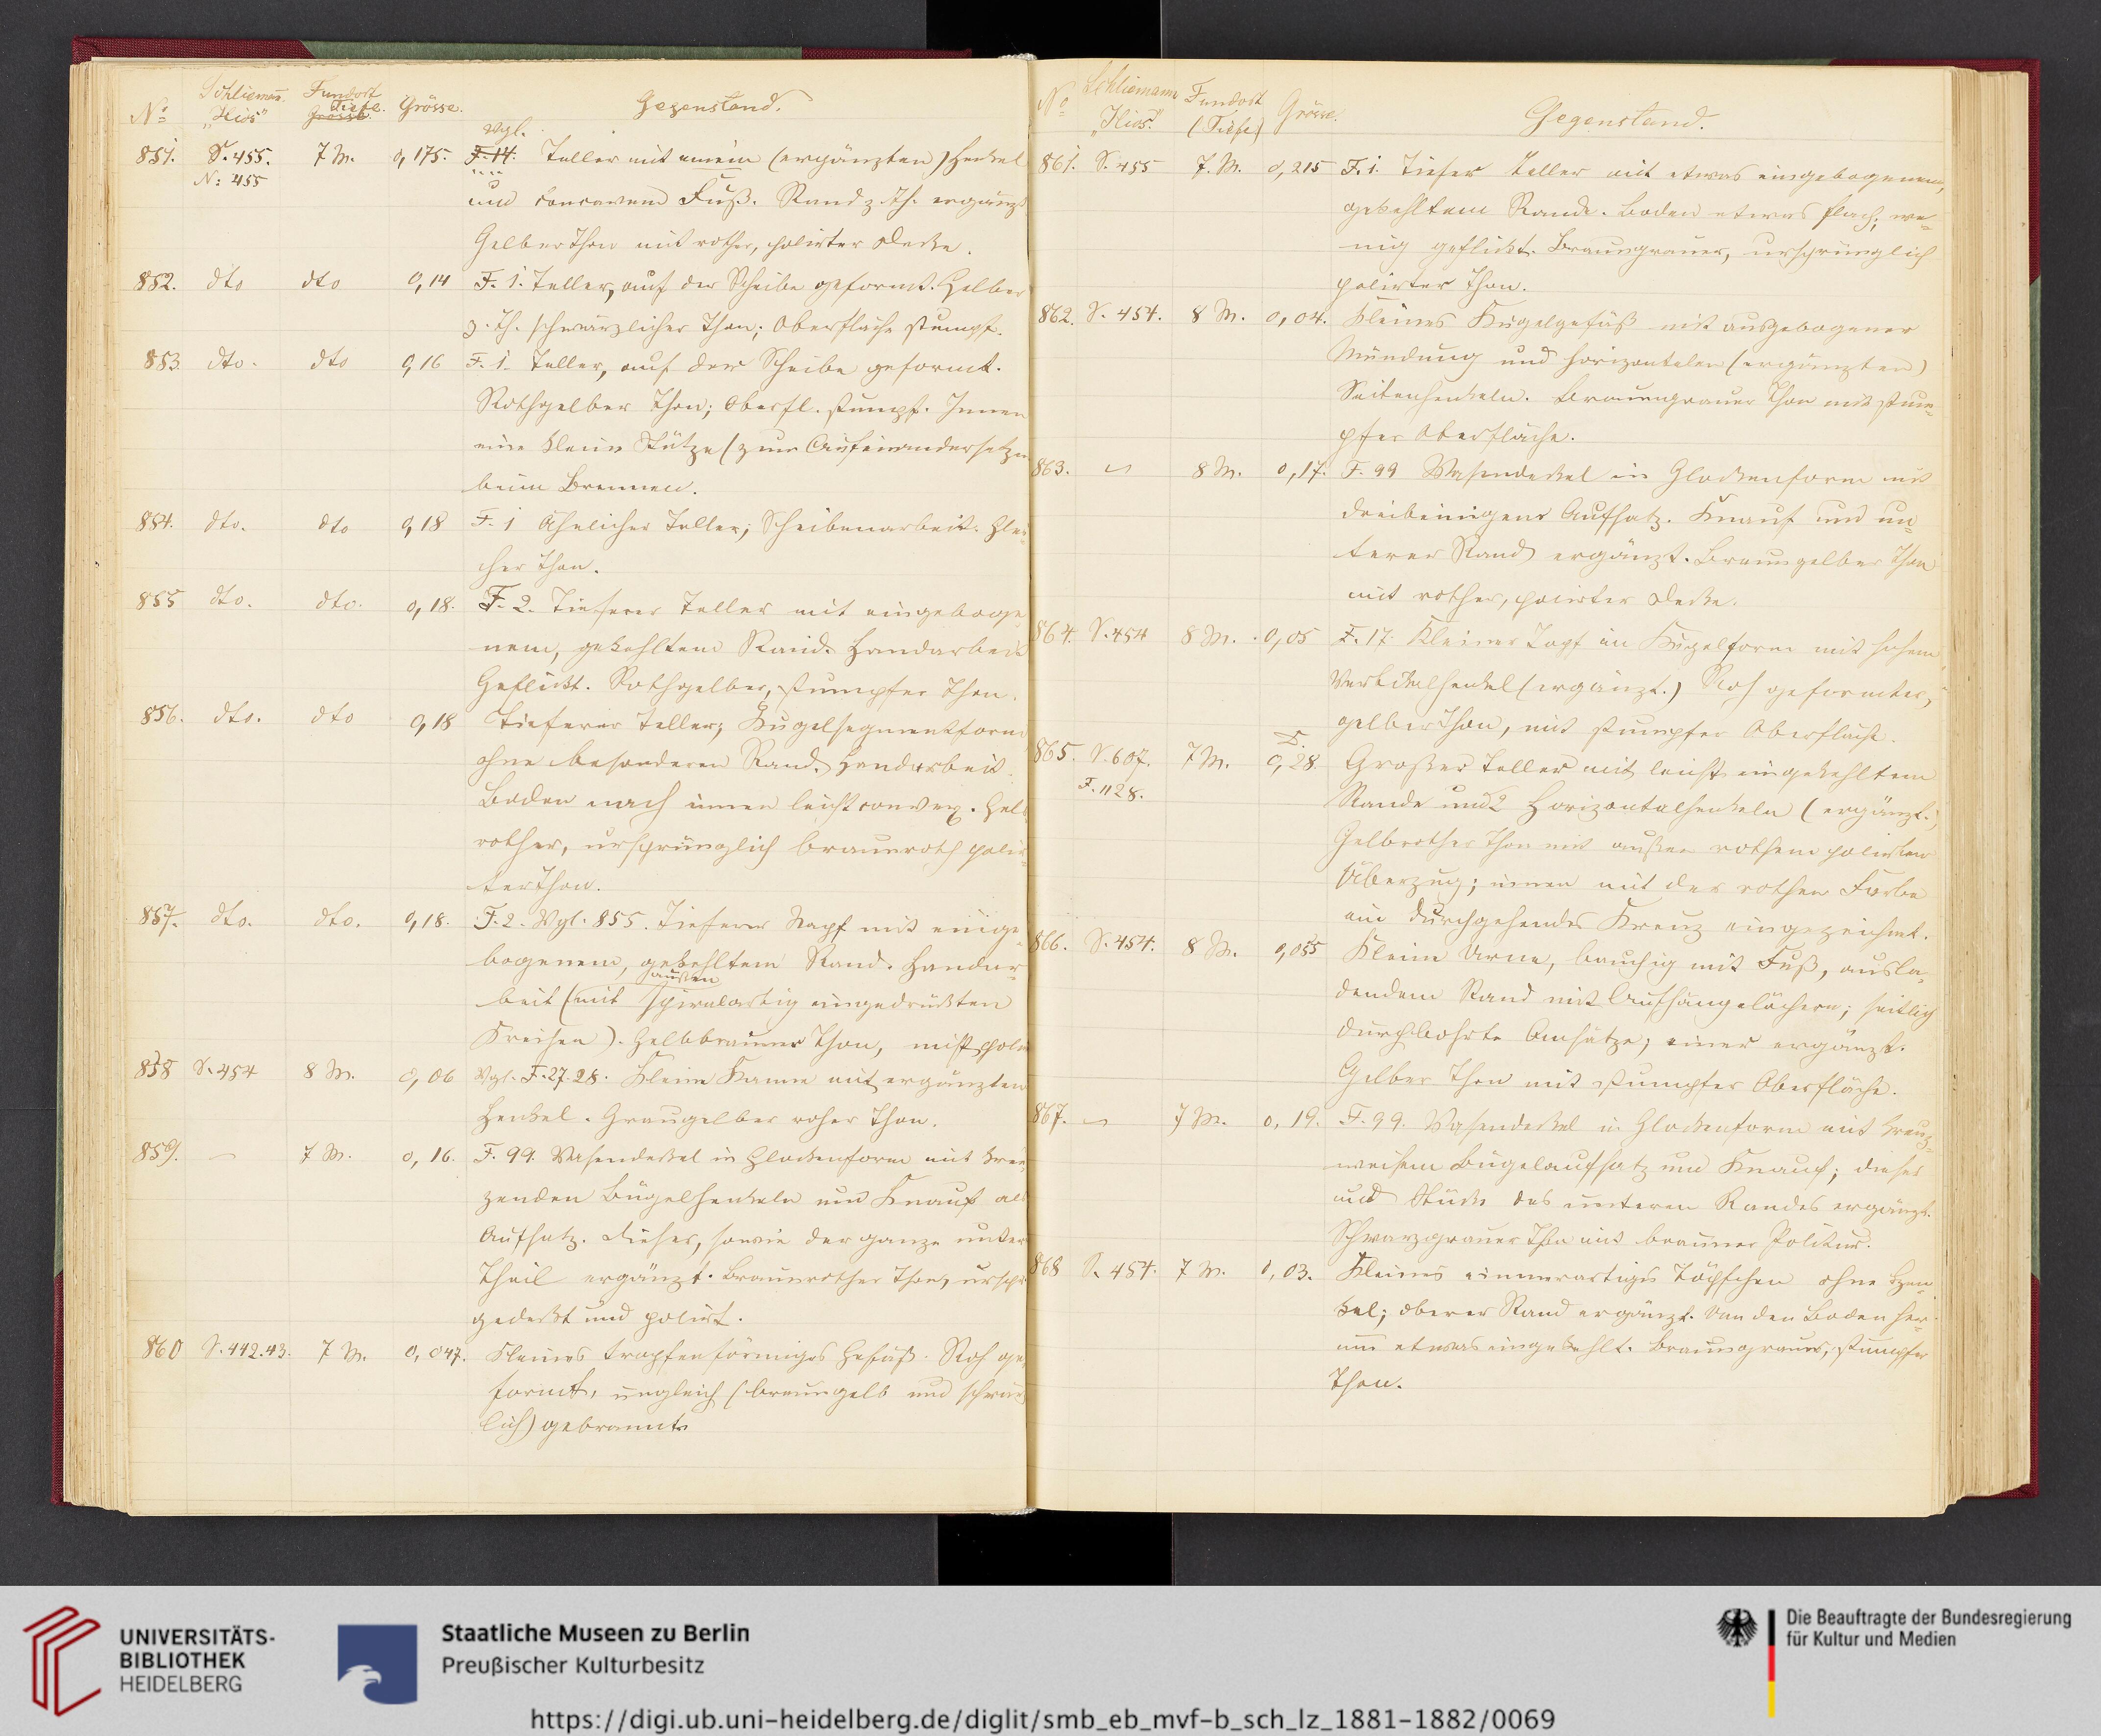 No Schliemann. Fundort Tiefe. Grösse. Gegenstand.
„Ilios"
851. S. 455. 7 M. 0,175. Vgl. F. 14. Teller mit einem (ergänzten) Henkel
N: 455 und concavem Fuß. Rand z. Th. ergänzt
Gelber Thon mit rother, polirter Decke.
852. dto dto 0,14 F. 1. Teller, auf der Scheibe geformt. Gelber
z. Th. schwärzlicher Thon; Oberfläche stumpf.
853. dto. dto 0,16 F. 1. Teller, auf der Scheibe geformt.
Rothgelber Thon; Oberfl. stumpf. Innen
eine kleine Stütze (zum Aufeinandersetzen
beim Brennen.
854. dto. dto 0,18 F. 1 Ähnlicher Teller; Scheibenarbeit. Glei-
cher Thon.
855 dto. dto. 0,18. F. 2. Tieferer Teller mit eingeboge
nem, gekehltem Rand. Handarbeit
Geflickt. Rothgelber, stumpfer Thon.
856. dto. dto 0,18 Tieferer Teller; Kugelsegmentform
ohne besonderen Rand. Handarbeit.
Boden nach innen leicht convex. Gelb
rother, ursprünglich braunroth polir-
ter Thon.
857. dto. dto. 0,18. F. 2. Vgl. 855. Tieferer Napf mit einge-
bogenem, gekehltem Rand. Handar-
beit (mit außen spiralartig eingedrückten
Kreisen). Gelbbrauner Thon, nicht polirt
858 S. 454 8 M. 0,06 Vgl. F. 27. 28. Kleine Kanne mit ergänzten
Henkel. Graugelber roher Thon.
859. — 7 M. 0,16. F. 99. Vasendeckel in Glockenform mit kreu
zenden Bügelhenkeln und Knauf als
Aufsatz. Dieser, sowie der ganze untere
Theil ergänzt. Braunrother Thon, urspr.
gedeckt und polirt.
860 S. 442.43. 7 M. 0,047. Kleines tropfenförmiges Gefäß. Roh ge-
formt, ungleich (braungelb und schwärz
lich) gebrannt.
No Schliemann Fundort Grösse. Gegenstand.
„Ilios." (Tiefe)
861. S. 455 7. M. 0,215 F. 1. Tiefer Teller mit etwas eingebogenem,
gekehltem Rande. Boden etwas flach; we-
nig geflickt. Braungrauer, ursprünglich
polirter Thon.
862. S. 454. 8 M. 0,04. Kleines Kugelgefäß mit ausgebogener
Mündung und horizontalen (ergänzten)
Seitenhenkeln. Braungrauer Thon mit stum-
pfer Oberfläche.
863. — 8 M. 0,17. F. 99 Vasendeckel in Glockenform mit
dreibeinigem Aufsatz. Knauf und un-
terer Rand ergänzt. Braungelber Thon
mit rother, polirter Decke.
864. S. 454 8 M. 0,05 F. 17. Kleiner Topf in Kugelform mit hohem
Vertikalhenkel (ergänzt.) Roh geformter,
gelber Thon, mit stumpfer Oberfläche.
865. S. 607. 7 M. D. 0,28. Großer Teller mit leicht eingekehltem
F. 1128. Rande und 2 Horizontalhenkeln (ergänzt.)
Gelbrother Thon mit außen rothem polirten
Überzug; innen mit der rothen Farbe
ein durchgehendes Kreuz eingezeichnet.
866. S. 454. 8 M. 0,055 Kleine Urne, bauchig mit Fuß, ausla-
dendem Rand mit Aufhängelöchern; seitlich
durchbohrte Ansätze; einer ergänzt.
Gelber Thon mit stumpfer Oberfläche.
867. — 7 M. 0,19. F. 99. Vasendeckel in Glockenform mit kreuz-
weisem Bügelaufsatz und Knauf; dieser
und Stücke des unteren Randes ergänzt.
Schwarzgrauer Thon mit brauner Politur.
868 S. 454. 7 M. 0,03. Kleines eimerartiges Töpfchen ohne Hen-
kel; oberer Rand ergänzt. Um den Boden her-
um etwas eingekehlt. Braungrauer, stumpfer
Thon.
UNIVERSITÄTS-
BIBLIOTHEK
HEIDELBERG
Staatliche Museen zu Berlin
Preußischer Kulturbesitz
Die Beauftragte der Bundesregierung
für Kultur und Medien
https://digi.ub.uni-heidelberg.de/diglit/smb_eb_mvf-b_sch_lz_1881-1882/0069